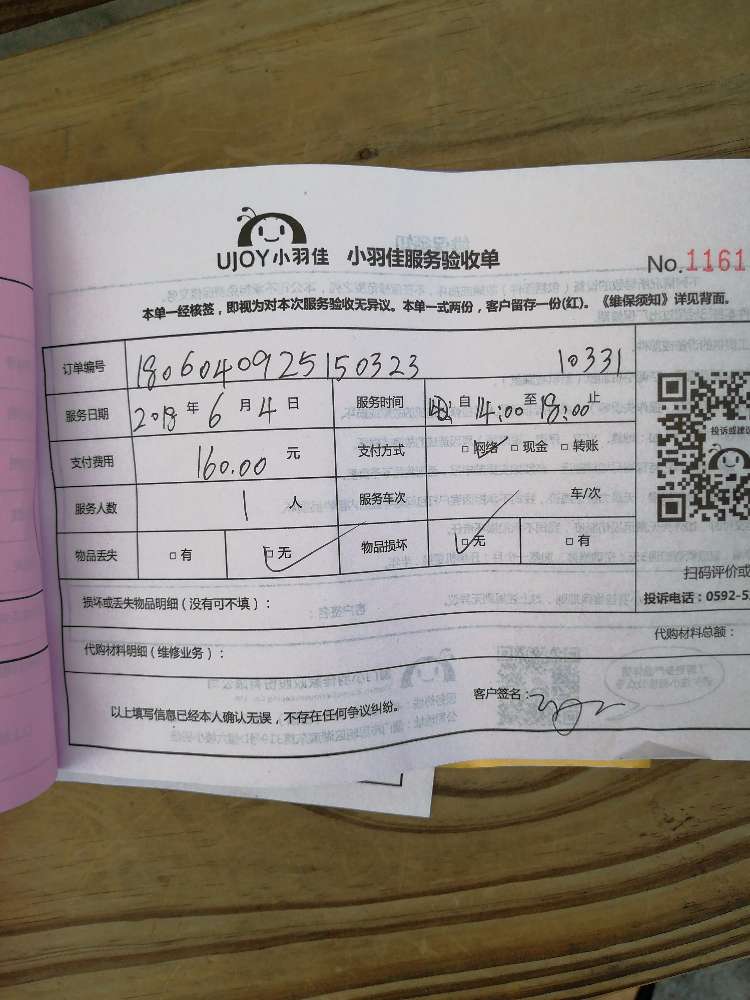 UJOY小羽佳 小羽佳服务验收单 No.1161
本单一经核签，即视为对本次服务验收无异议。本单一式两份，客户留存一份(红)。《维保须知》详见背面。
订单编号 1806040925150323 10331
服务日期 2018 年 6 月 4 日 服务时间 自 14:00 至 18:00 止
支付费用 160.00 元 支付方式 □网络 □现金 □转账
服务人数 1 人 服务车次 车/次
物品丢失 □有 □无 物品损坏 □无 □有
投诉或建议
扫码评价或
投诉电话：0592-5
损坏或丢失物品明细（没有可不填）：
代购材料明细（维修业务）： 代购材料总额：
以上填写信息已经本人确认无误，不存在任何争议纠纷。 客户签名：